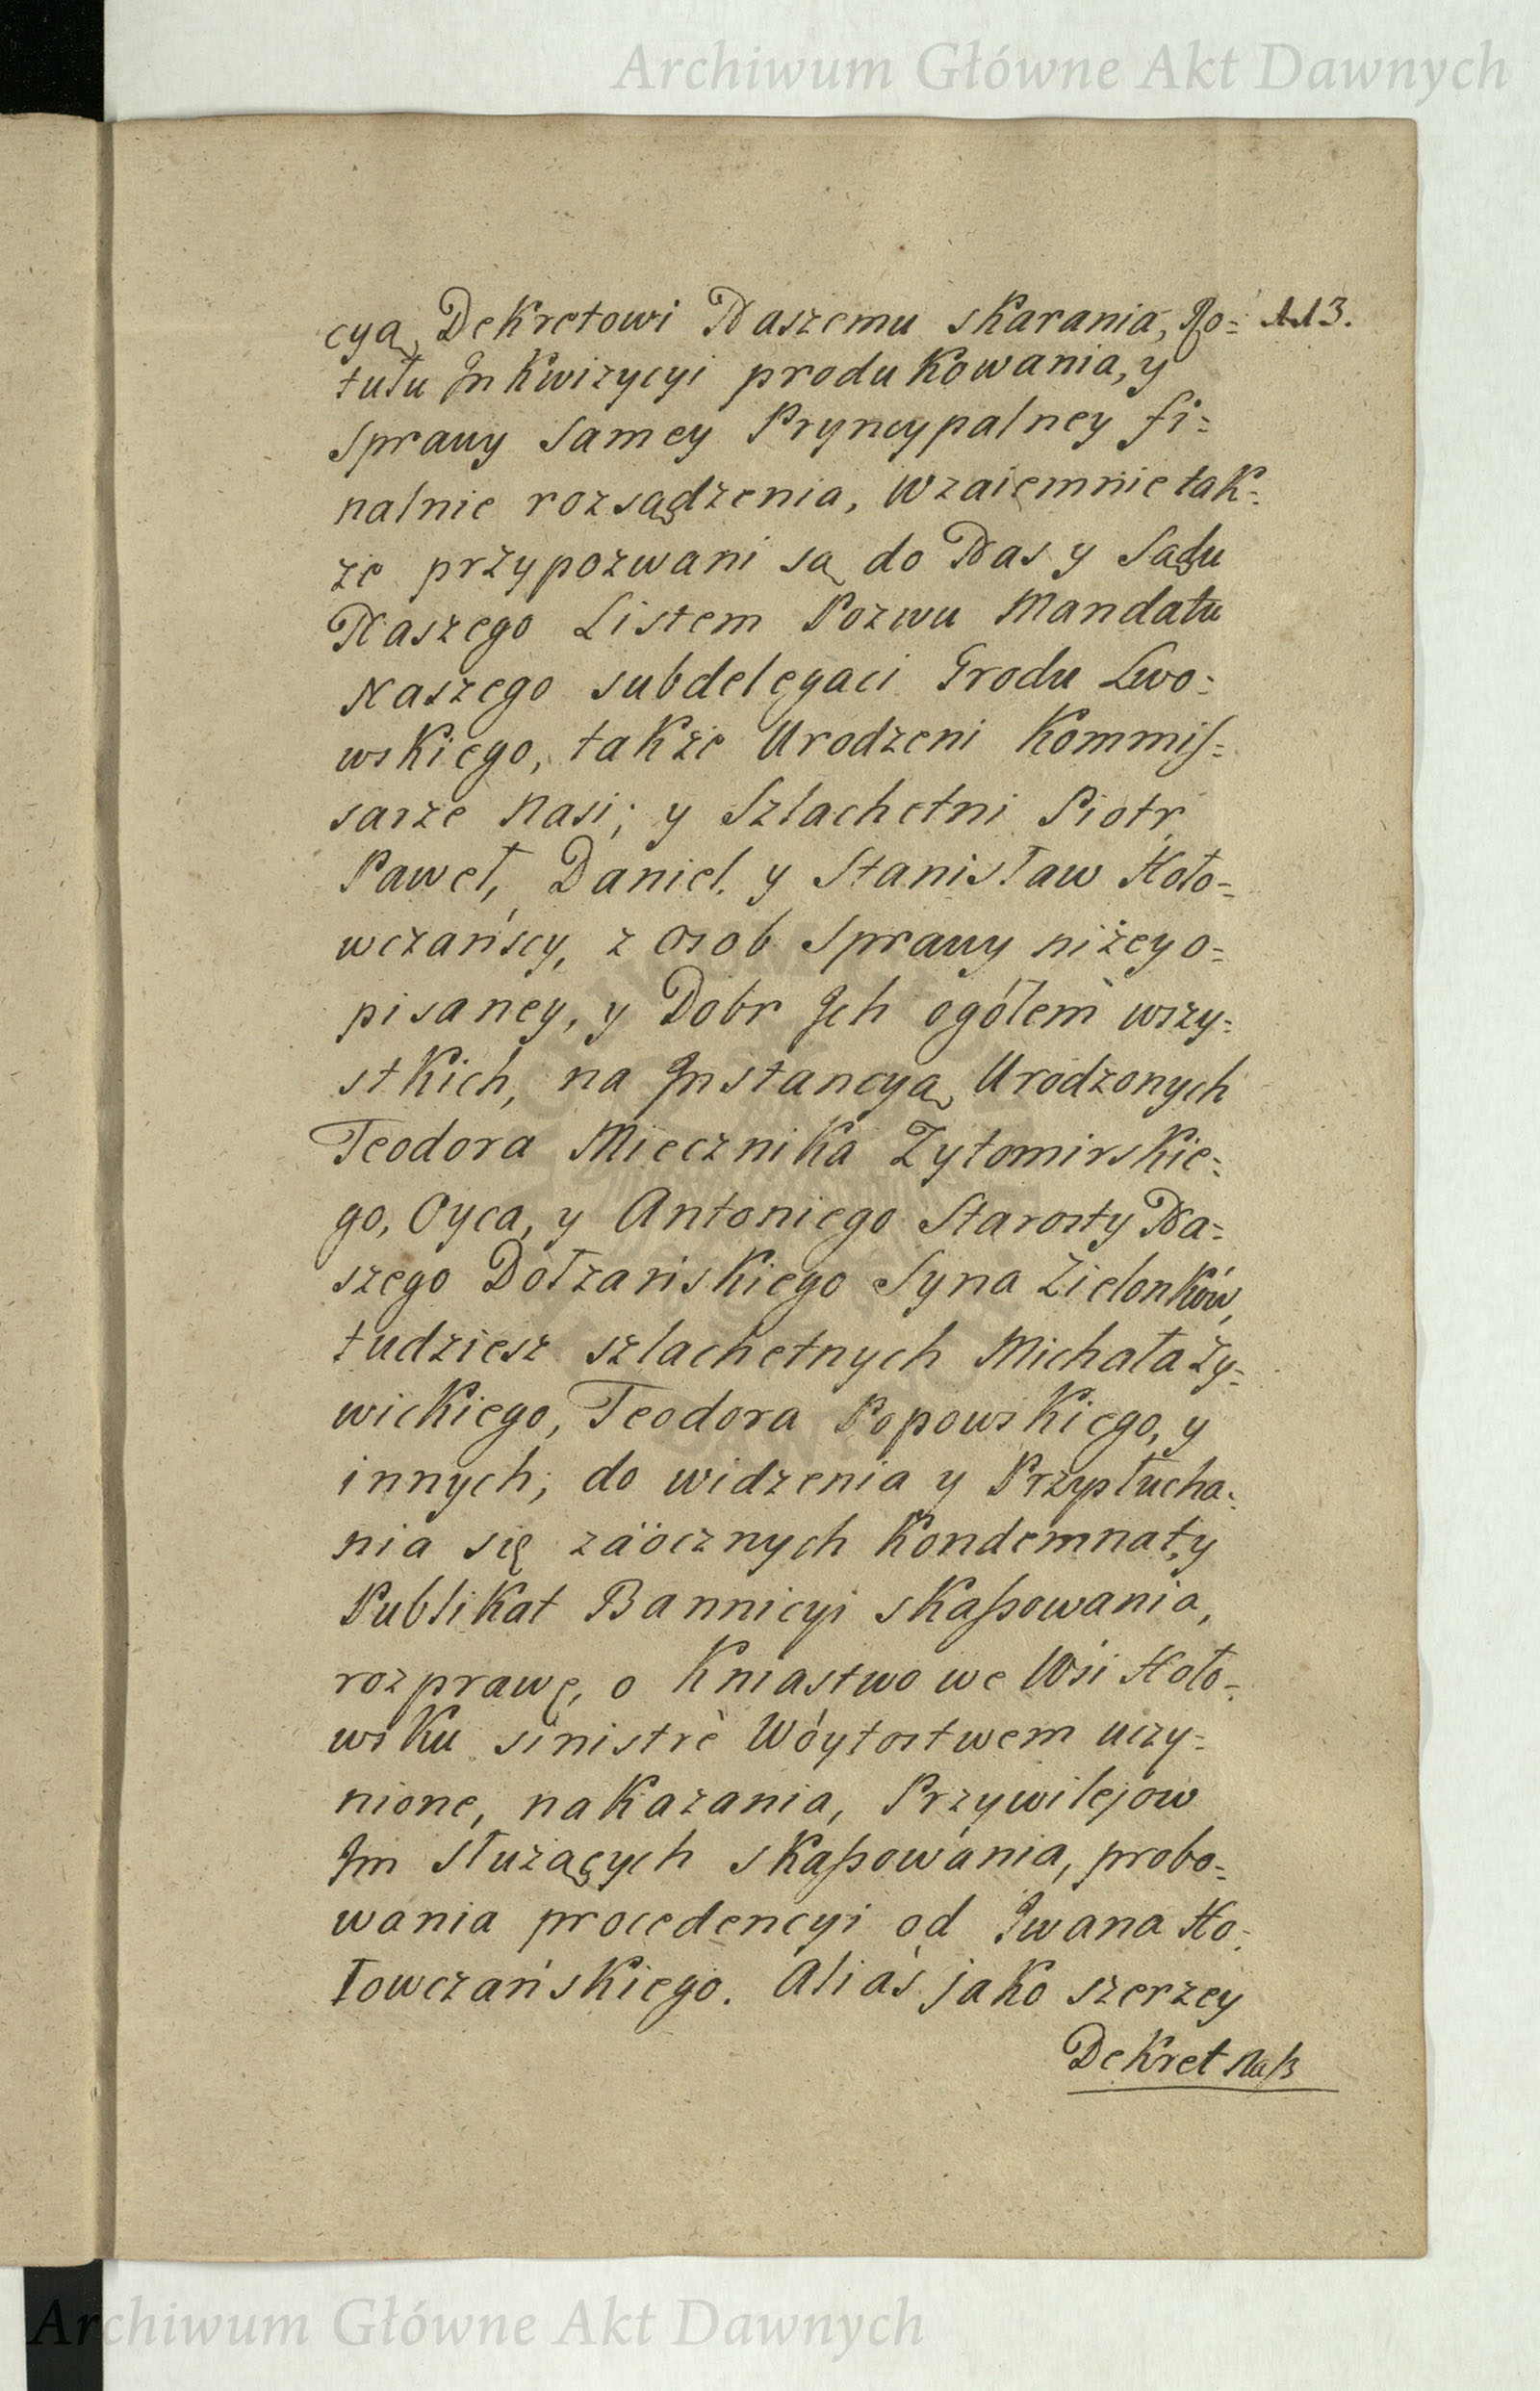 Archiwum Główne Akt Dawnych
cyą Dekretowi Naszemu skarania, Ro= 113.
tułu Inkwizycyi produkowania, y
Sprawy Samey Pryncypalney fi=
nalnie rozsądzenia, Wzaiemnie tak=
że przypozwani są do Nas y Sądu
Naszego Listem Pozwu Mandatu
Naszego subdelegaci Grodu Lwo=
wskiego, także Urodzeni Kommis=
sarze Nasi; y Szlachetni Piotr
Paweł, Daniel. y Stanisław Hoło=
wczańscy, z Osob Sprawy niżeyo=
pisaney, y Dobr Ich ogółem wszy=
stkich, na Instancyą Urodzonych
Teodora Miecznika Zytomirskie=
go, Oyca, y Antoniego Starosty Na=
szego Dołzańskiego Syna Zielonków,
tudziesz szlachetnych Michała Zy=
wickiego, Teodora Popowskiego, y
innych; do widzenia y Przysłucha=
nia się zäöcznych Kondemnat, y
Publikat Bannicyi skaßowania,
rozprawę, o Kniastwo we Wsi Hoło=
wsku sinistrè Wóytostwem uczy=
nione, nakazania, Przywilejow
Im Służących skaßowania, probo=
wania procedencyi od Iwana Ho=
łowczańskiego. Aliàs jako szerzey
Dekret Naß
Archiwum Główne Akt Dawnych